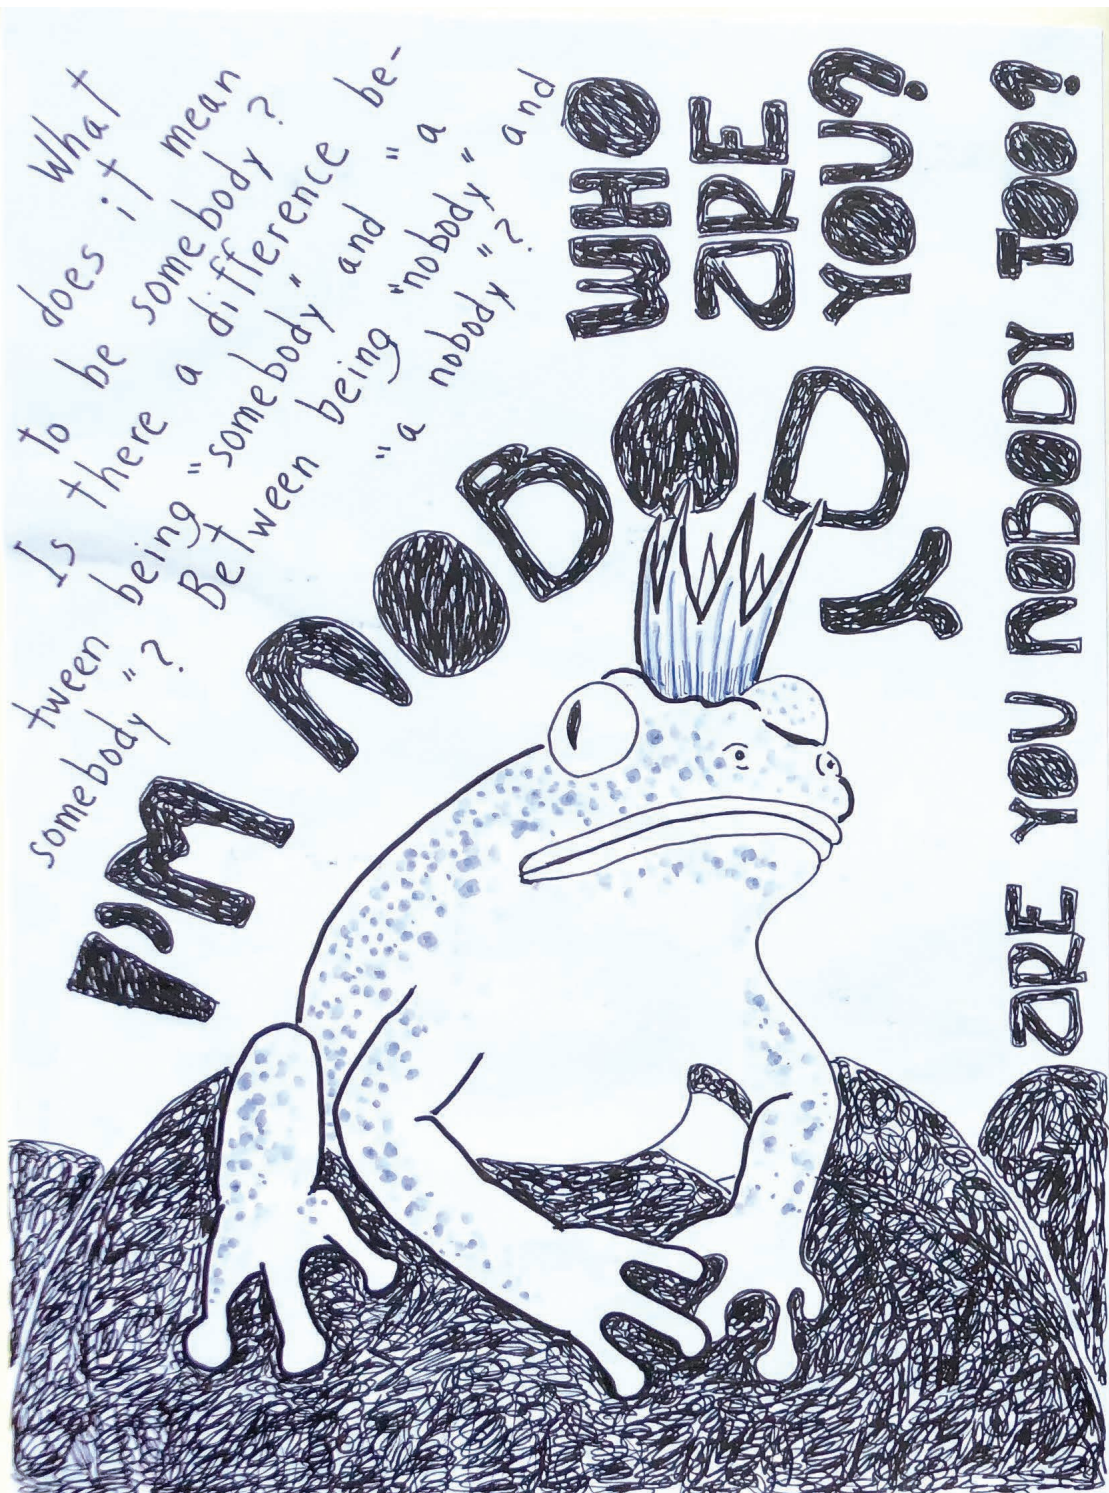 What
does it mean
to be somebody?
Is there a difference be-
tween being "somebody" and "a
somebody"? Between being "nobody" and
"a nobody"?
I'M NOBODY
WHO
ARE
YOU?
ARE YOU NOBODY TOO?